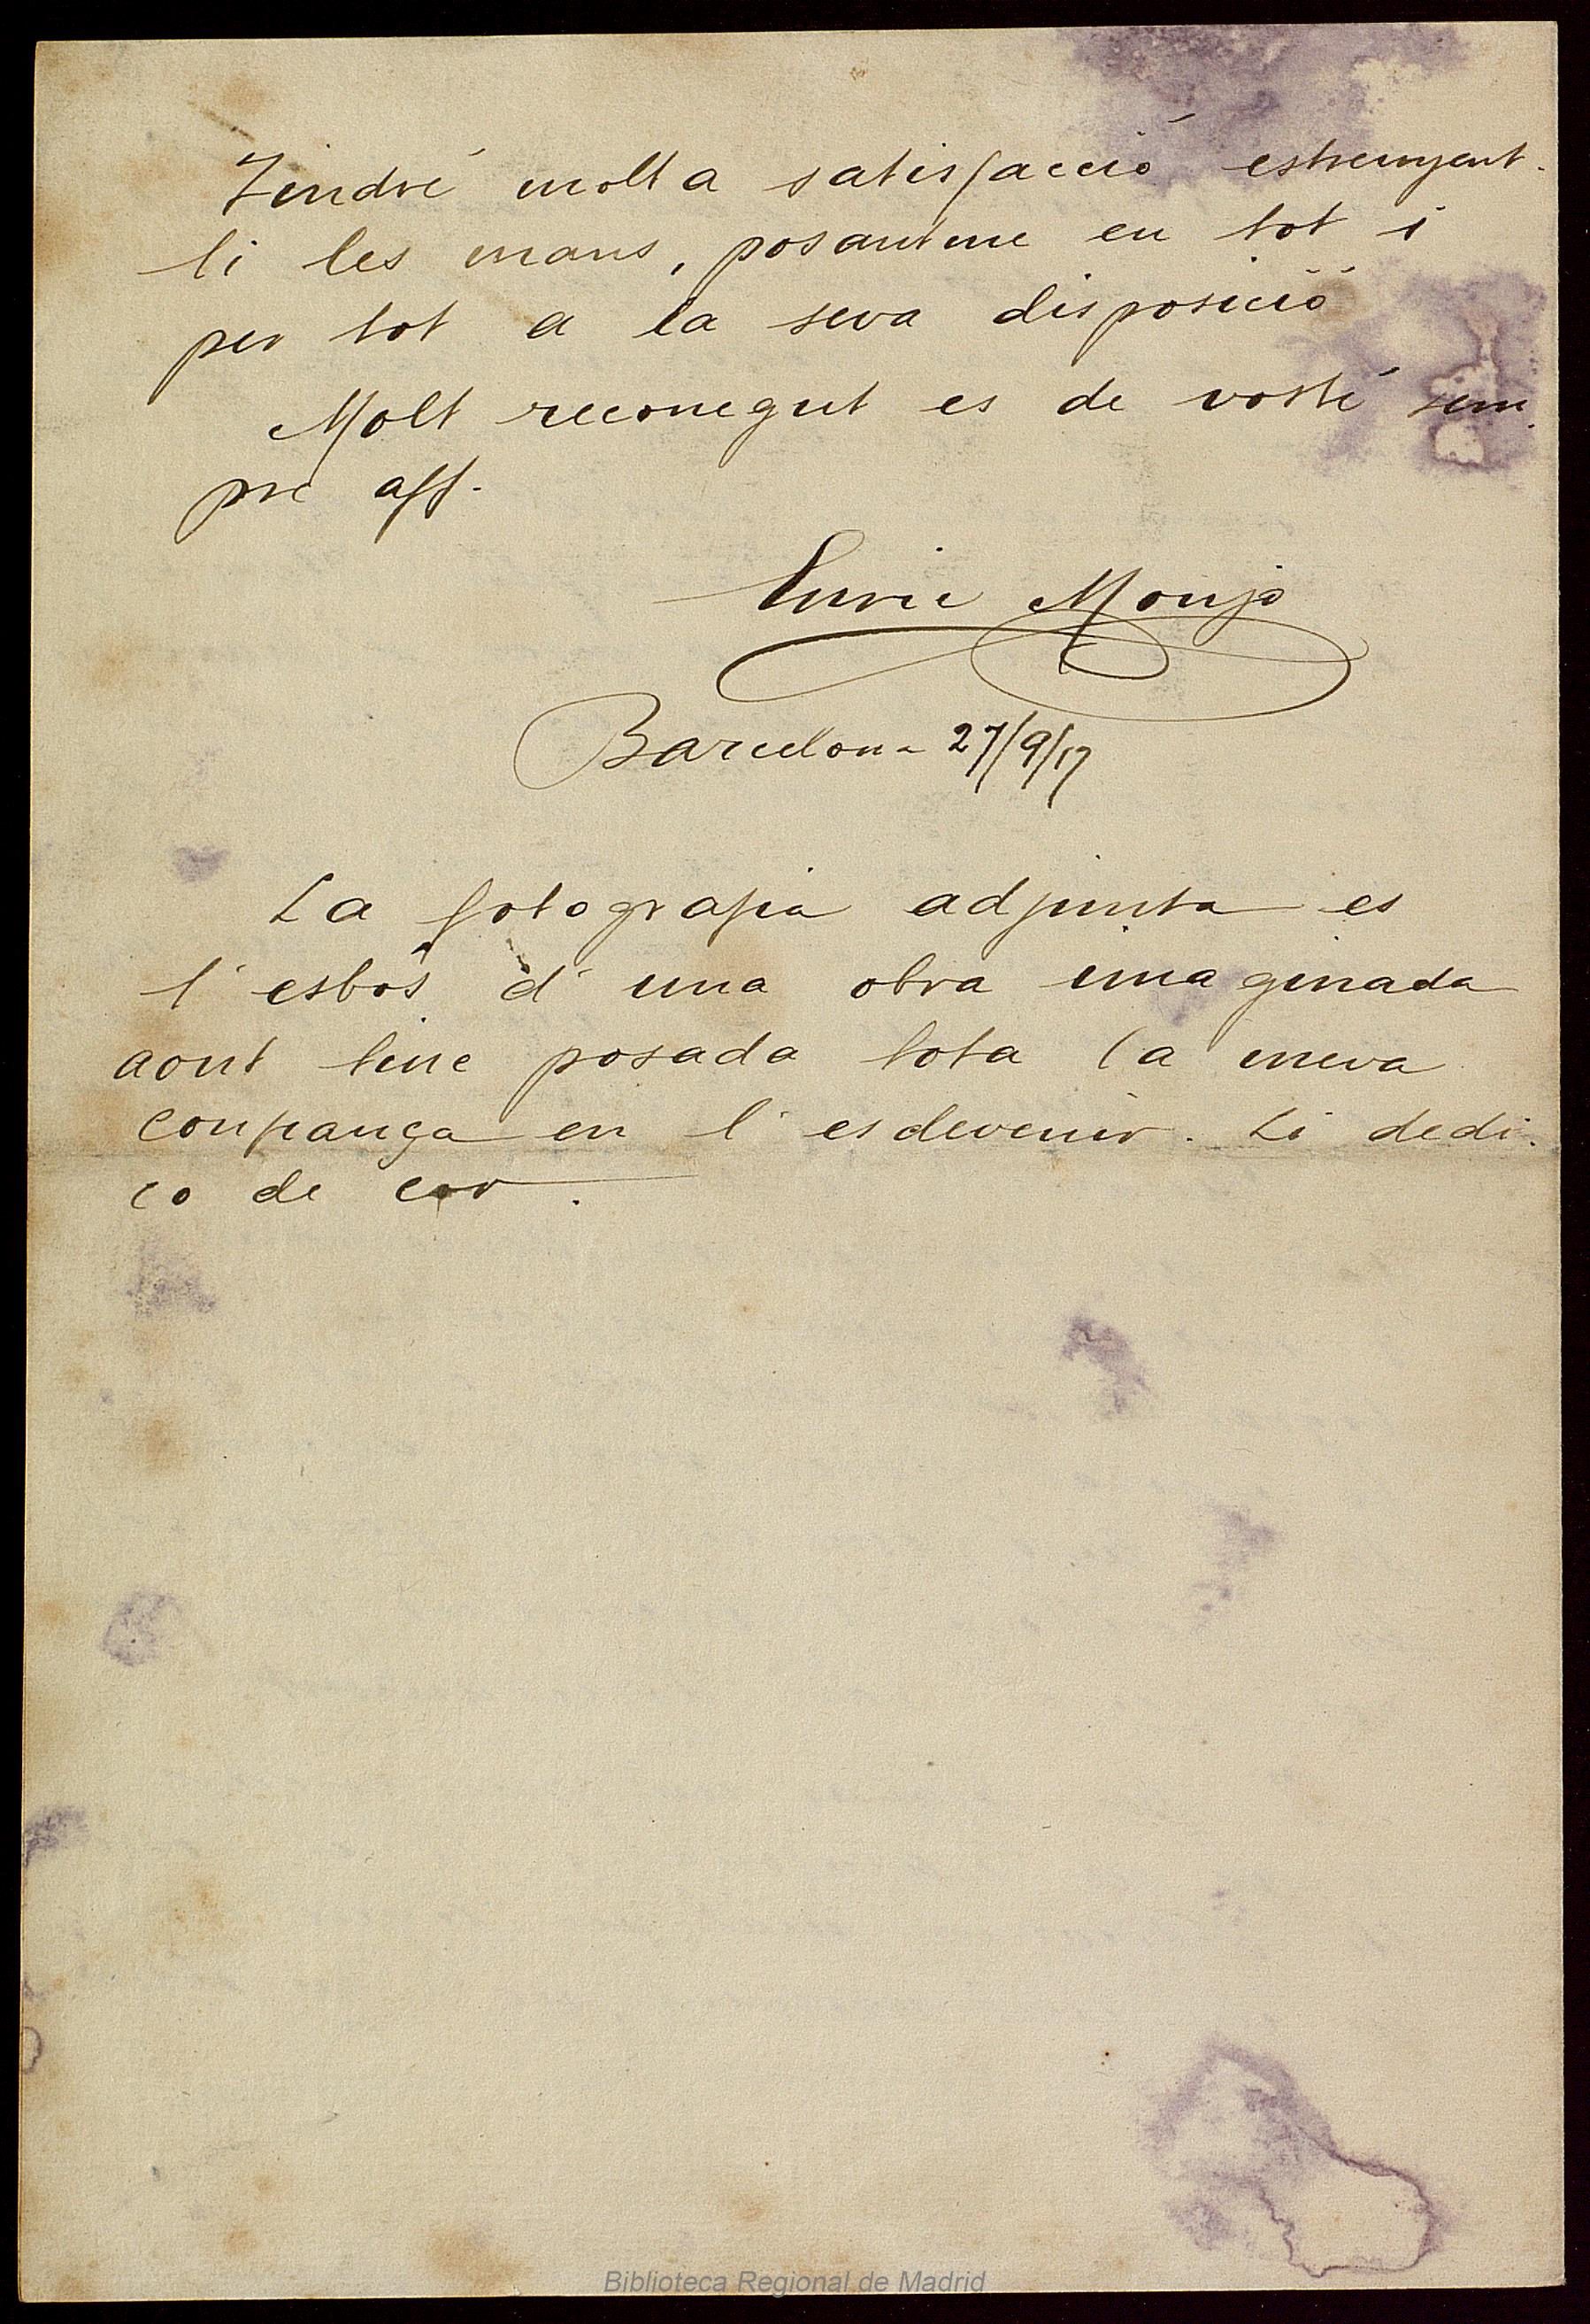 Tindré molta satisfacció estrenyent-
li les mans, posantme en tot i
per tot a la seva disposició
Molt reconegut es de vosté sem-
pre aff.
Enric Monjo
Barcelona 27/9/17
La fotografia adjunta es
l'esbós d'una obra imaginada
aont tinc posada tota la meva
confiança en l'esdevenir. Li dedi-
co de cor.
Biblioteca Regional de Madrid